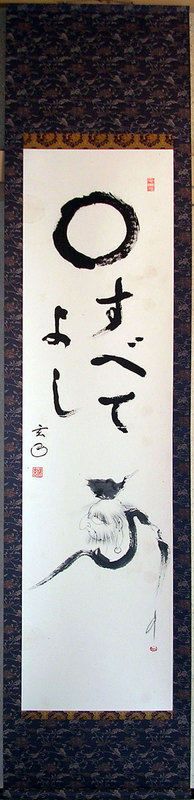 〇すべて
よし
玄